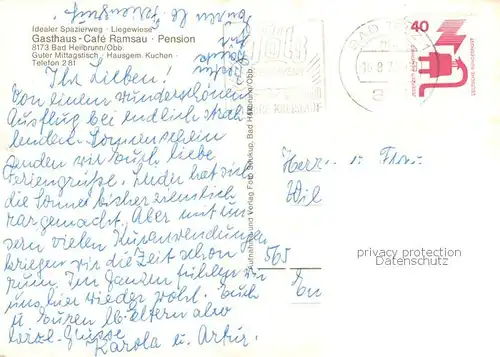 Idealer Spazierweg · Liegewiese
Gasthaus - Café Ramsau · Pension
8173 Bad Heilbrunn/Obb.
Guter Mittagstisch · Hausgem. Kuchen ·
Telefon 2 81
Ihr Lieben!
Von einem wunderschönen
Ausflug bei endlich strah
lendem Sonnenschein
senden wir Euch liebe
Feriengrüße. Leider hat sich
die Sonne bisher ziemlich
rar gemacht. Aber mit un
sern vielen Kuranwendungen
kriegen wir die Zeit schon
rum. Im Ganzen fühlen wir
uns hier wieder wohl. Euch
u. Euren lb. Eltern also
Grüsse
Karola u. Artur.
Aufnahme und Verlag Foto Soukup, Bad Heilbrunn/Obb.
BAD TÖLZ
40
DEUTSCHE BUNDESPOST
Herrn u. Frau
Wil
565
privacy protection
Datenschutz